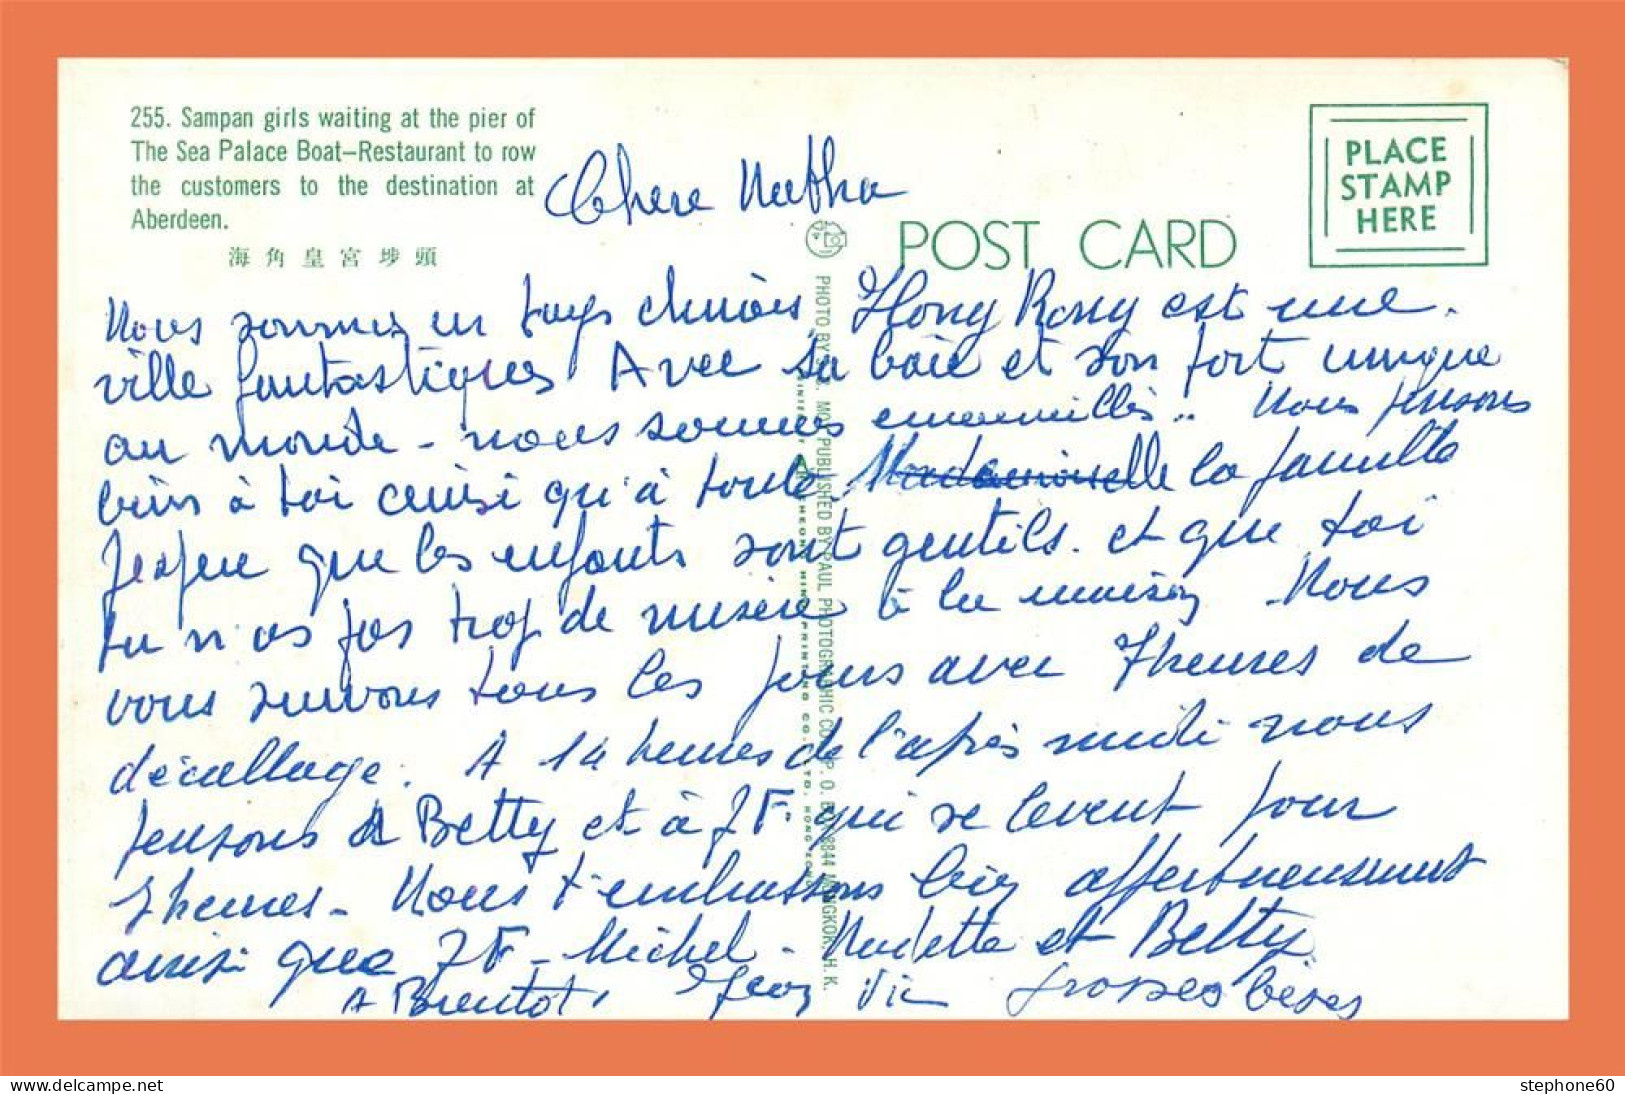 255. Sampan girls waiting at the pier of
The Sea Palace Boat–Restaurant to row
the customers to the destination at
Aberdeen.
海角皇宮埗頭
POST CARD
PLACE
STAMP
HERE
Chere
Nous sommes en pays chinois, Hong Kong est une
ville fantastiques Avec sa baie et son port unique
au monde - nous sommes emerveillés.. Nous pensons
bien à toi ainsi qu'à toute Mademoiselle la famille
J'espere que les enfants sont gentils. et que toi
tu n'as pas trop de misere à la maison Nous
vous suivons tous les jours avec 7 heures de
décallage. A 14 heures de l'après midi nous
pensons à Betty et à J F. qui se levent pour
7 heures - Nous t'embrassons bien affectueusement
ainsi que J F - Michel - et Betty
A Bientot, Gros bises
PHOTO BY S. MOK PUBLISHED BY PAUL PHOTOGRAPHIC CO. P. O. BOX 8844 MONGKOK, H. K.
PRINTING CO., LTD, HONG KONG
stephone60